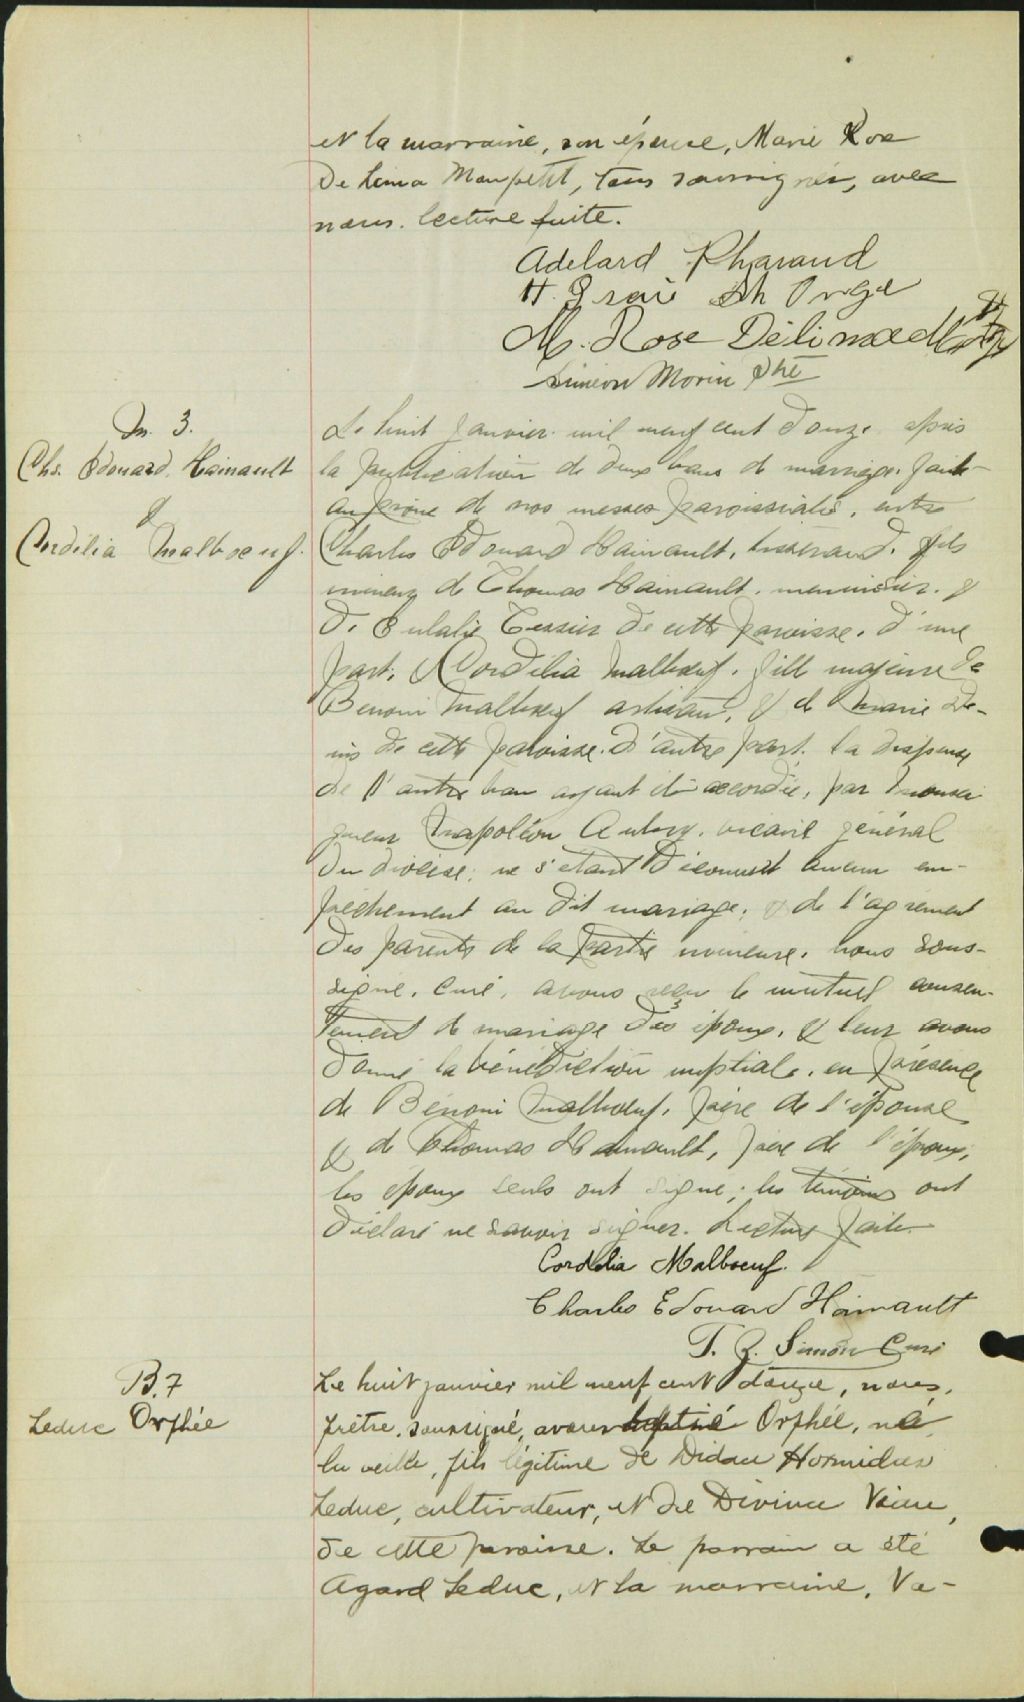 et la marraine, son épouse, Marie Rose
De Lima Monpetit, tous soussignés, avec
nous. lecture faite.
Adelard Pharand
H. Isaïe St Onge
M. Rose Délima
Siméon Morin Ptre
M. 3.
Chs. Edouard Hainault
&
Cordélia Malboeuf.
Le huit janvier mil neuf cent douze après
la publication de deux bans de mariage faite
au prône de nos messes paroissiales, entre
Charles Edouard Hainault, tisserand, fils
mineur de Thomas Hainault, menuisier, &
de Eulalie Tessier de cette paroisse, d'une
part, & Cordélia Malboeuf, fille majeure de
Benoni Malboeuf artisan, & de Marie De-
nis de cette paroisse d'autre part, la dispense
de l'autre ban ayant été accordée, par Monsei
gneur Napoléon Aubry, vicaire général
du diocèse; ne s'étant découvert aucun em-
pêchement au dit mariage; & de l'agrément
des parents de la partie mineure, nous sous-
signé, curé, avons reçu le mutuel consen-
tement de mariage des époux, & leur avons
donné la bénédiction nuptiale, en présence
de Bénoni Malboeuf, père de l'épouse
& de Thomas Hainault, père de l'époux,
les époux seuls ont signé; les témoins ont
déclaré ne savoir signer. Lecture faite.
Cordelia Malboeuf.
Charles Edouard Hainault
T. Z. Simon Curé
B. 7
Leduc Orphée
Le huit janvier mil neuf cent douze, nous,
prêtre, soussigné, avons baptisé Orphée, né
la veille, fils légitime de Didace Hormidas
Leduc, cultivateur, et de Divina
de cette paroisse. Le parrain a été
Agard Leduc, et la marraine, Va-